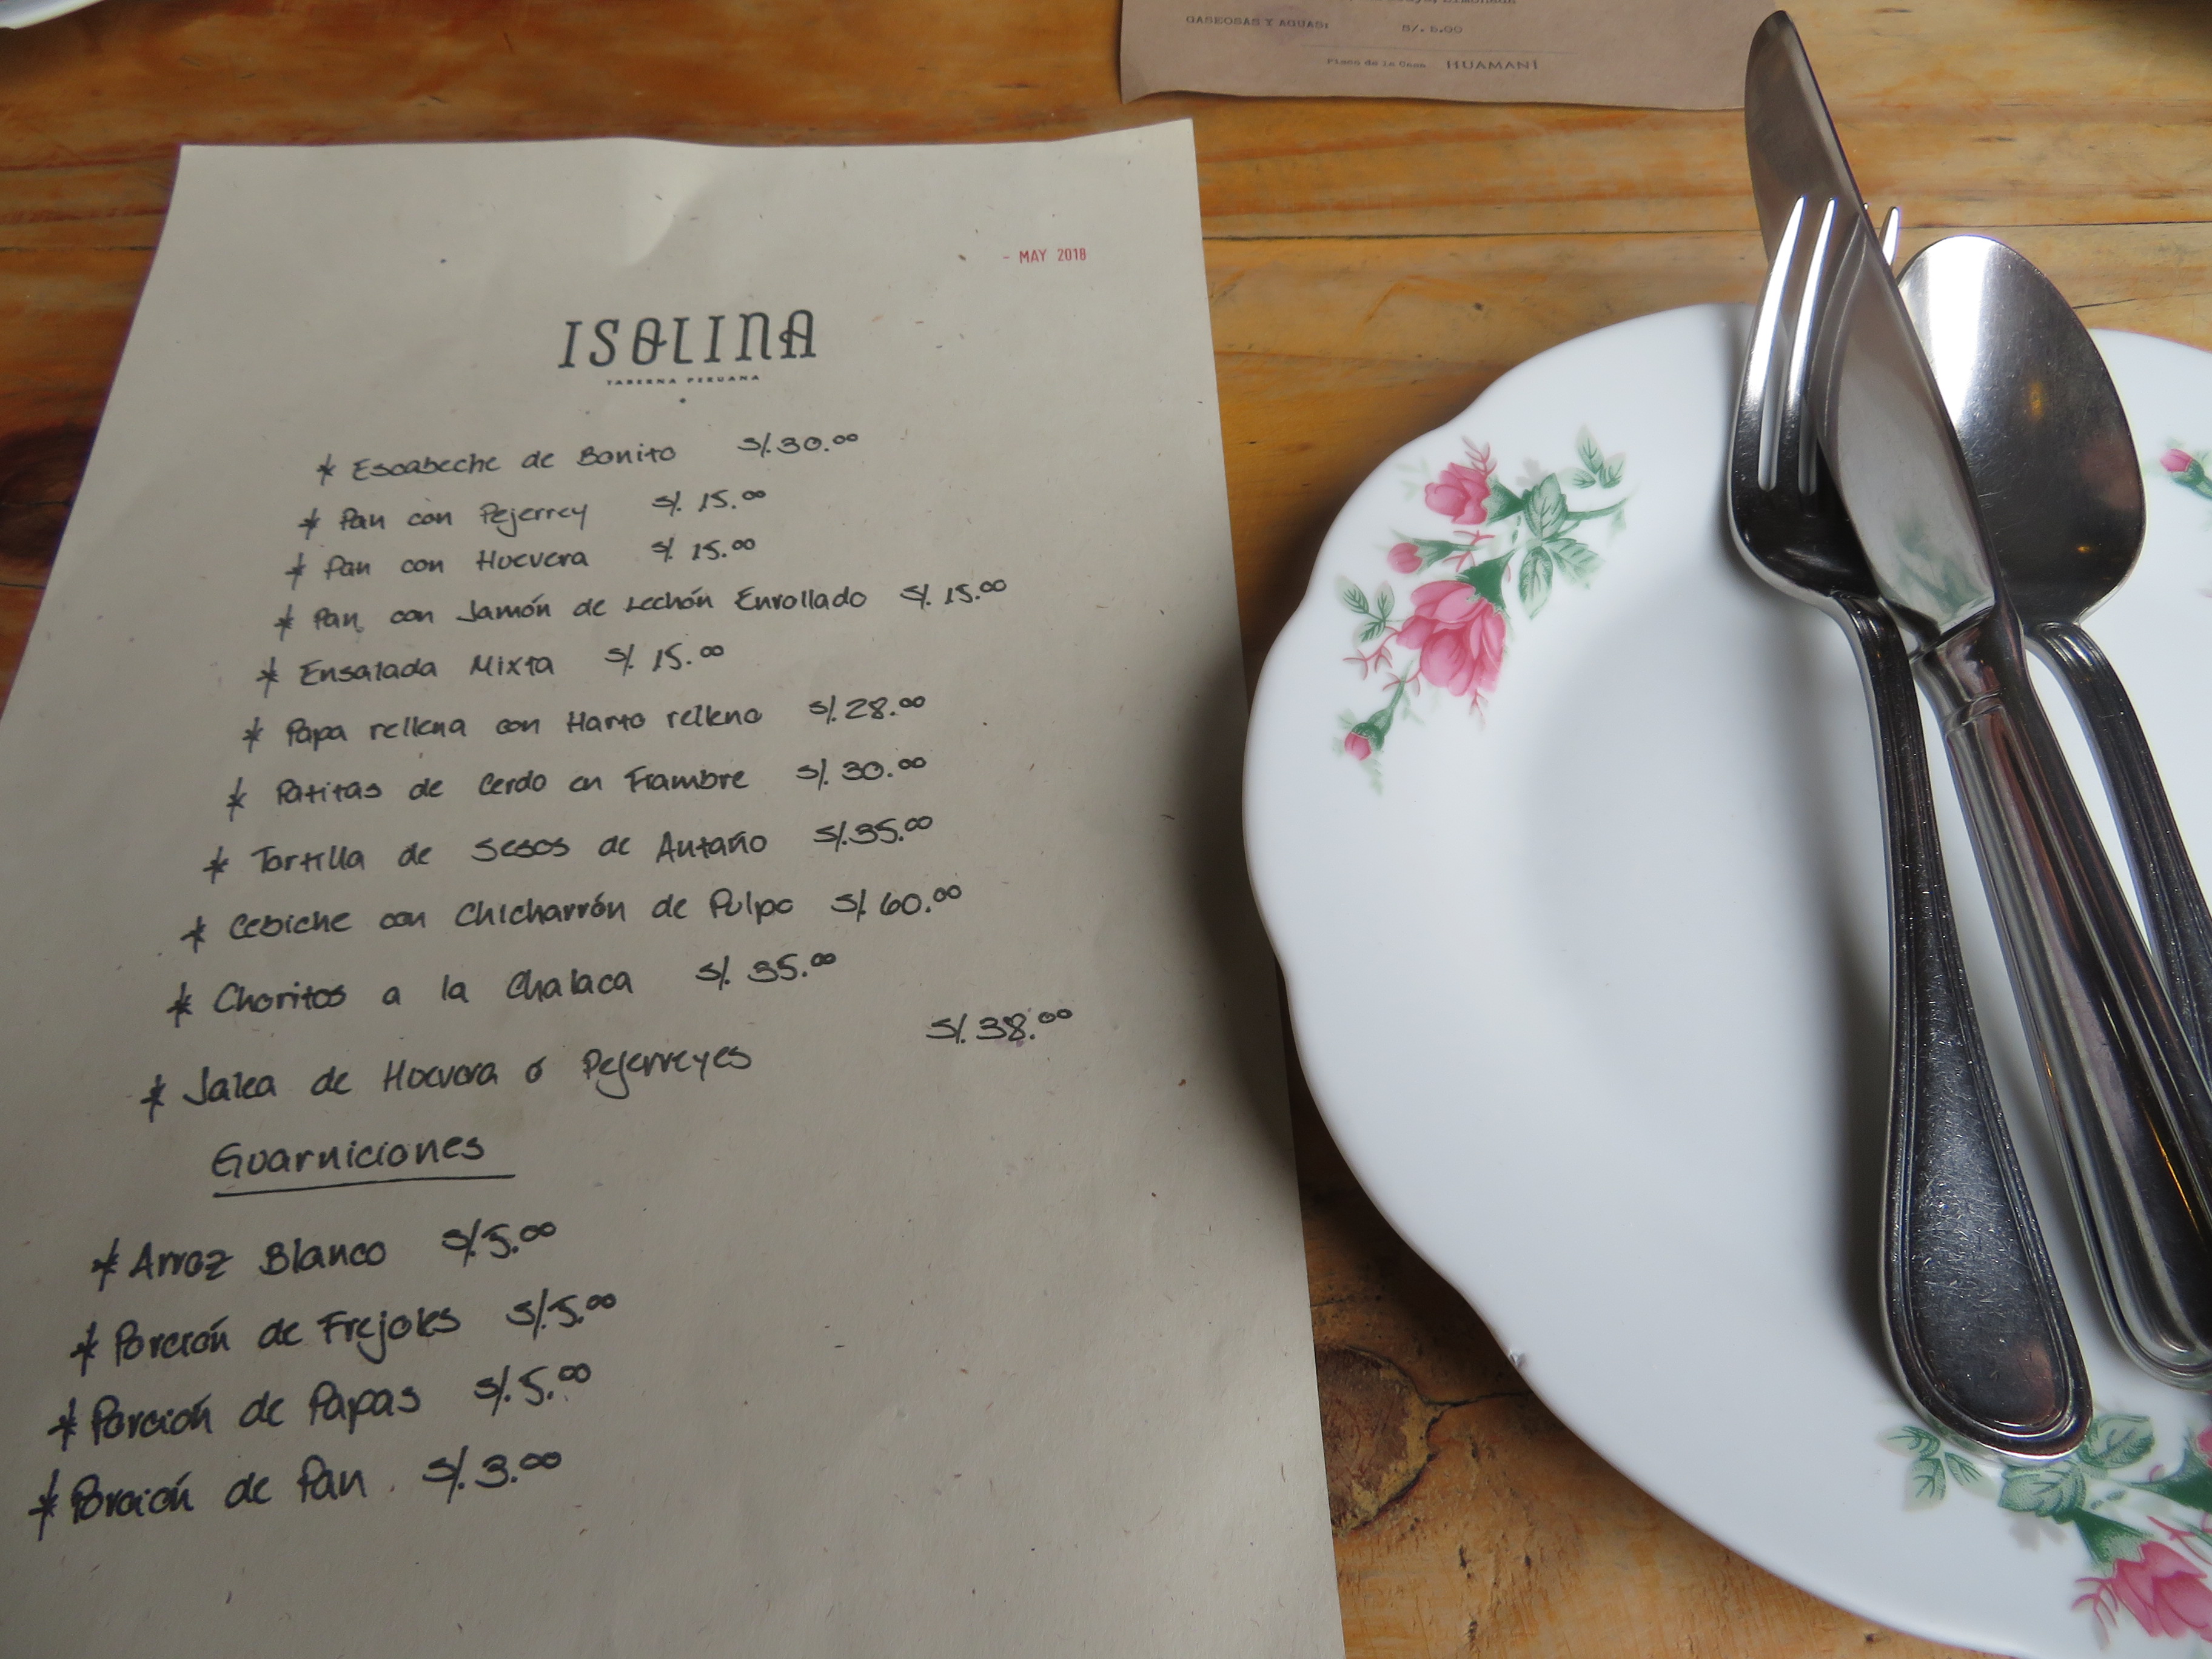 GASEOSAS Y AGUAS: S/. 6.00
Plano de la Casa HUAMANÍ
- MAY 2018
ISOLINA
TABERNA PERUANA
* Escabeche de Bonito S/.30.00
* Pan con Pejerrey S/. 15.00
* Pan con Huevera S/. 15.00
* Pan con Jamón de Lechón Enrollado S/. 15.00
* Ensalada Mixta S/. 15.00
* Papa rellena con Harto relleno S/.28.00
* Patitas de Cerdo en Fiambre S/. 30.00
* Tortilla de Sesos de Antaño S/.35.00
* Cebiche con Chicharrón de Pulpo S/. 60.00
* Choritos a la Chalaca S/. 35.00
* Jalea de Huevera ó Pejerreyes S/.38.00
Guarniciones
* Arroz Blanco S/.5.00
* Porción de Frejoles S/.5.00
* Porción de Papas S/.5.00
* Porción de Pan S/.3.00